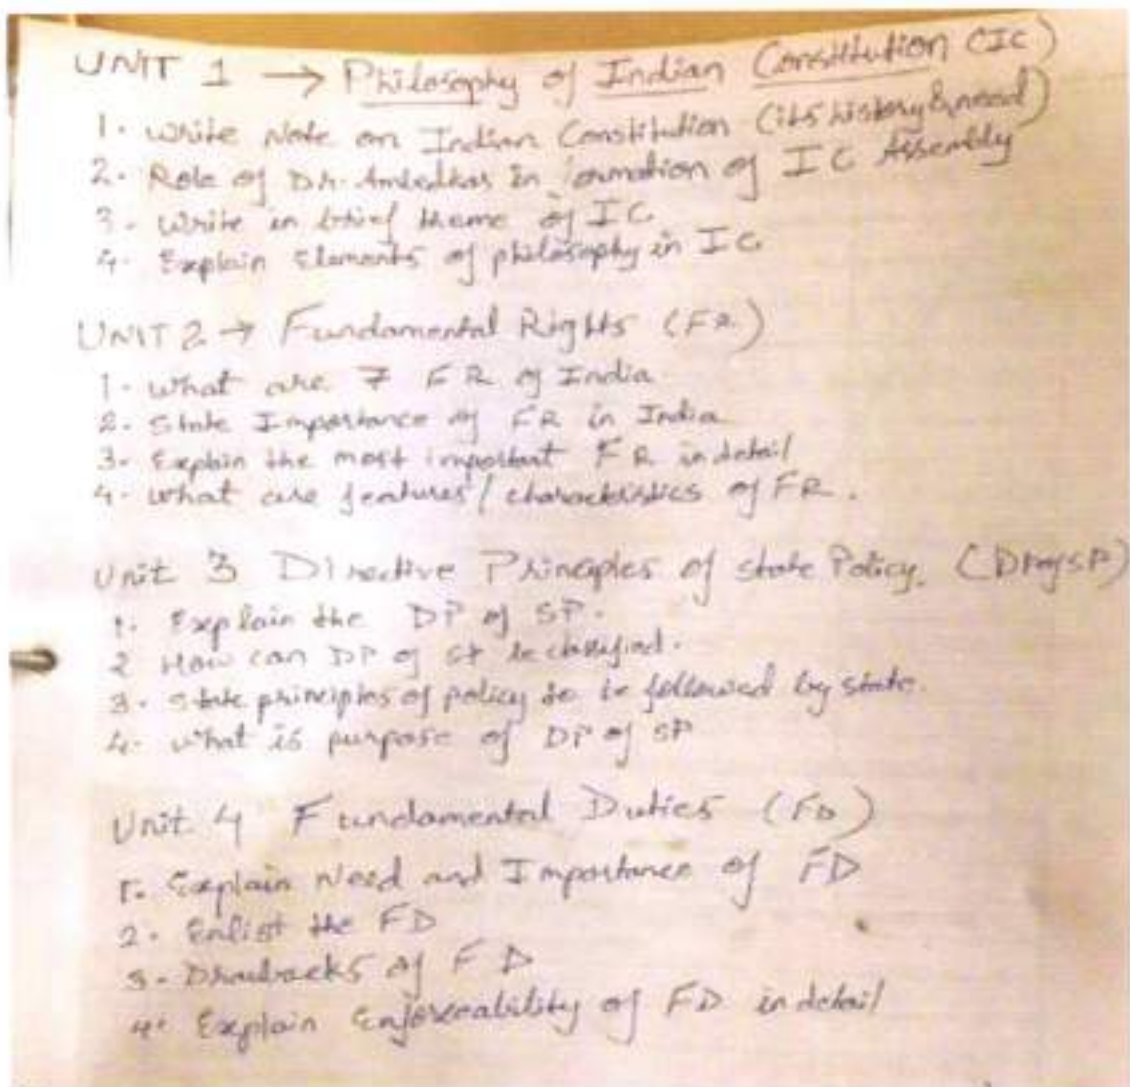 UNIT 1 → Philosophy of Indian Constitution (IC)
1. Write Note on Indian Constitution (its history & need)
2. Role of Dr. Ambedkar in formation of IC Assembly
3. Write in brief theme of IC
4. Explain Elements of philosophy in IC
UNIT 2 → Fundamental Rights (FR)
1. What are 7 FR of India
2. State Importance of FR in India
3. Explain the most important FR in detail
4. What are features / characteristics of FR.
Unit 3 Directive Principles of state Policy. (DP of SP)
1. Explain the DP of SP.
2 How can DP of SP be classified.
3. State principles of policy to be followed by state.
4. What is purpose of DP of SP
Unit 4 Fundamental Duties (FD)
1. Explain Need and Importance of FD
2. Enlist the FD
3. Drawbacks of FD
4. Explain Enforceability of FD in detail